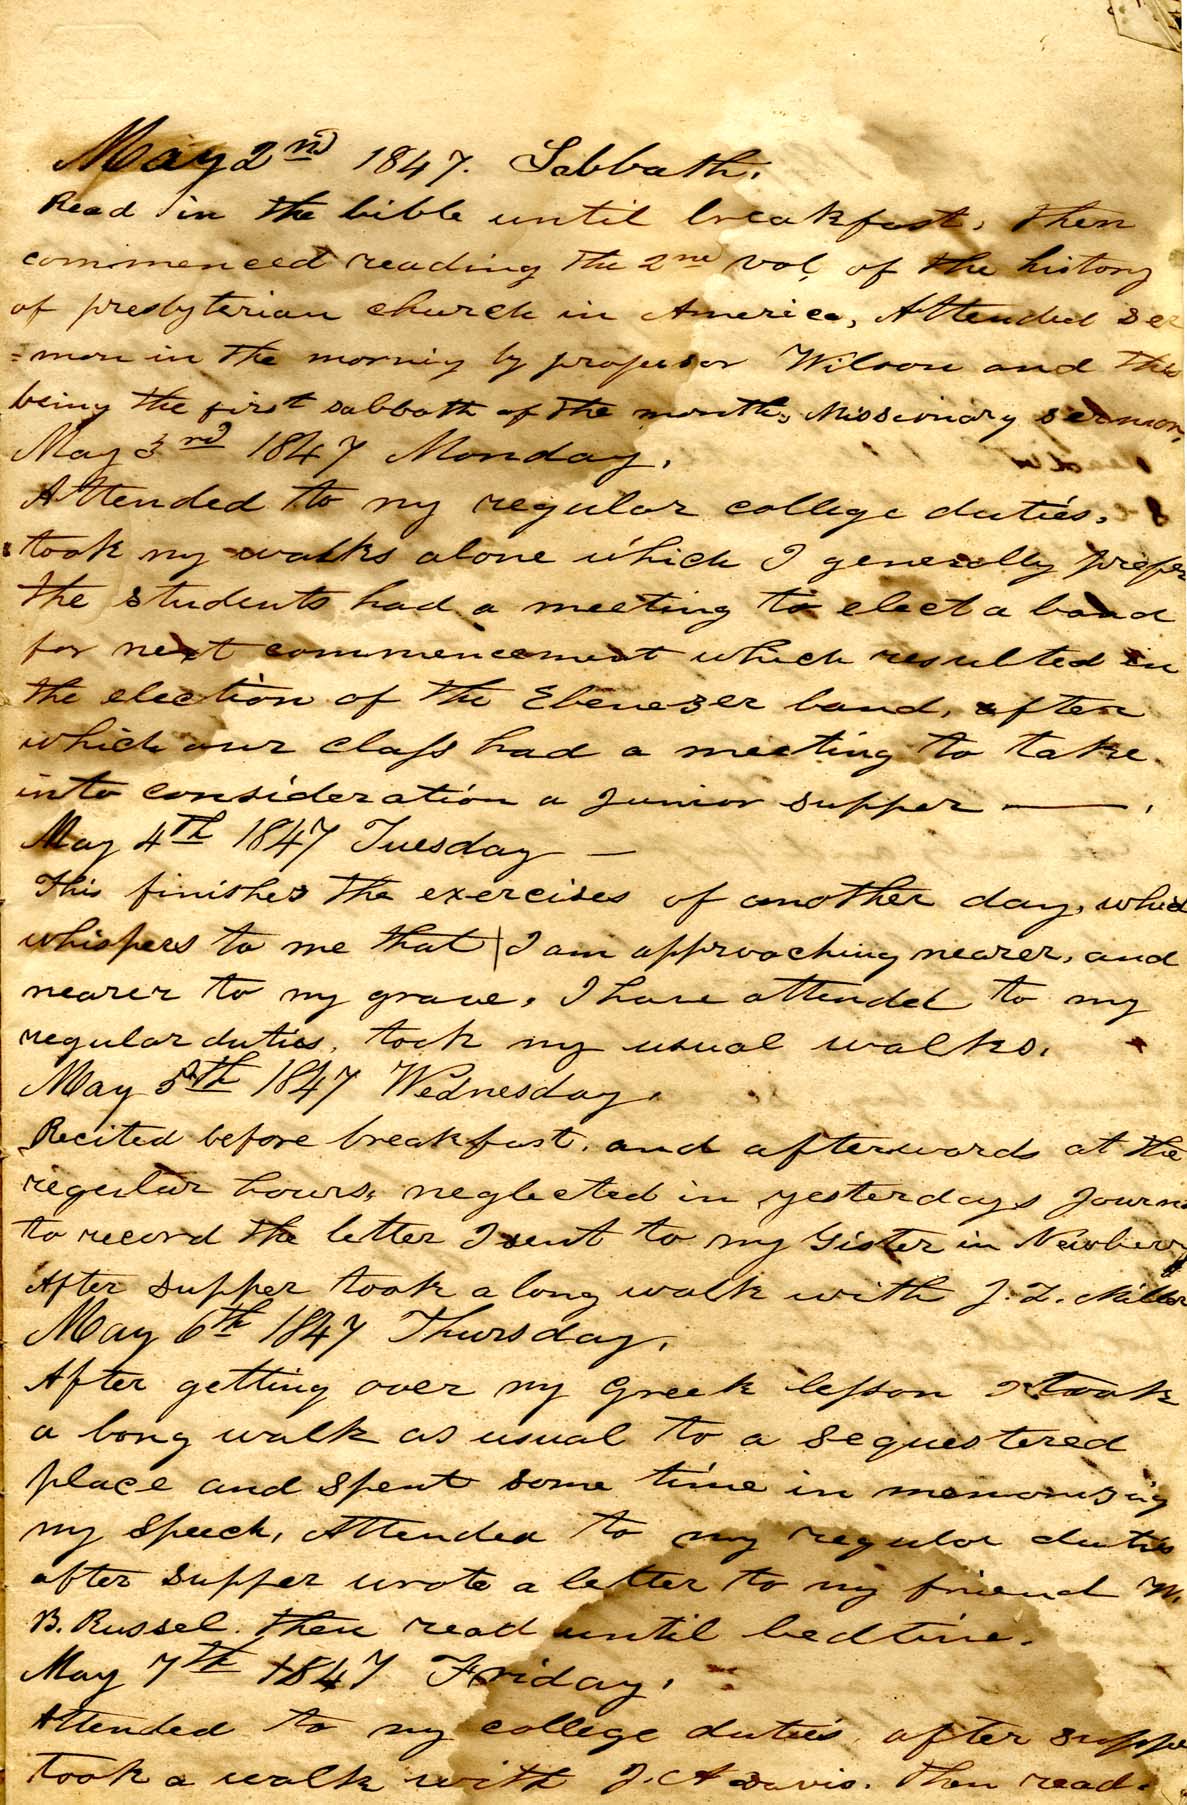 May 2nd 1847. Sabbath.
Read in the bible until breakfast, then
commenced reading the 2nd vol, of the history
of presbyterian church in America, Attended Ser
=mon in the morning by professor Wilson and this
being the first sabbath of the month, Missionary sermon,
May 3rd 1847 Monday,
Attended to my regular college duties,
took my walks alone which I generally prefer
the students had a meeting to elect a band
for next commencement which resulted in
the election of the Ebenezer band, after
which our class had a meeting to take
into consideration a junior supper —— .
May 4th 1847 Tuesday —
This finishes the exercises of another day, which
whispers to me that I am approaching nearer, and
nearer to my grave, I have attended to my
regular duties, took my usual walks.
May 5th 1847 Wednesday,
Recited before breakfast, and afterwards at the
regular hours, neglected in yesterdays Journ
to record the letter I sent to my Sister in Newberry
After supper took a long walk with J. Z. Miller
May 6th 1847 Thursday,
After getting over my Greek lesson I took
a long walk as usual to a sequestered
place and spent some time in memorizing
my speech, Attended to my regular duties
after supper wrote a letter to my friend W.
B. Russel. then read until bedtime.
May 7th 1847 Friday,
Attended to my college duties, after suppe
took a walk with J. A Davis. then read